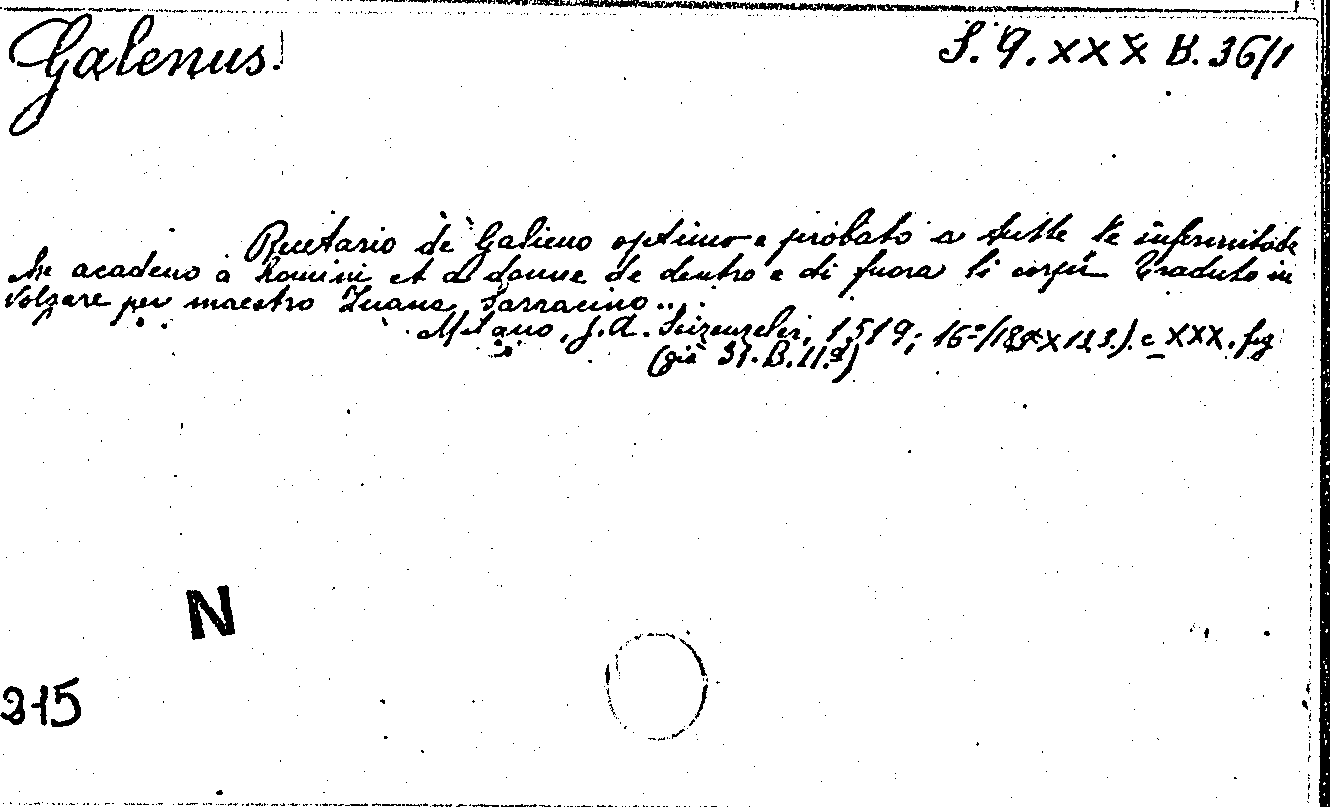 Galenus.
S. Q. XXX B. 36/1
Recetario de Galieno optimo e probato a tutte le infermitade
che acadeno a homini et a donne de dentro e di fuora li corpi Traduto in
volgare per maestro Zuane Sarracino...
Milano, J. A. Scizenzeler, 1519; 16º c XXX. fig
(già 31. B. 11.
N
315